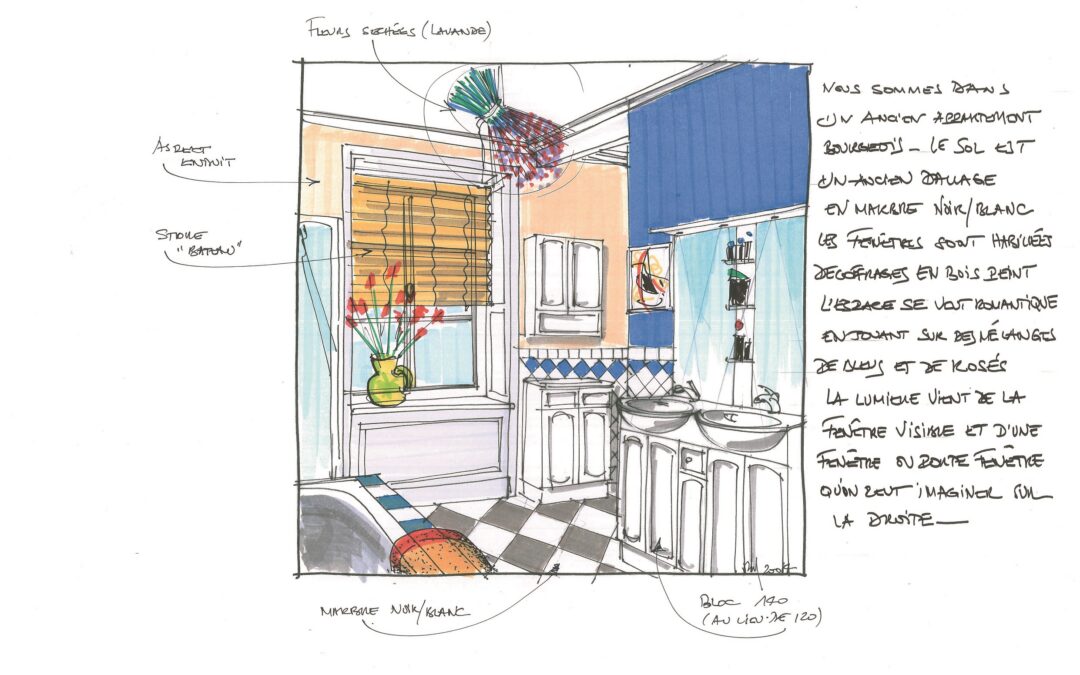 FLEURS SECHÉES (LAVANDE)
ASPECT
ENDUIT
STORE
"BATEAU"
NOUS SOMMES DANS
UN ANCIEN APPARTEMENT
BOURGEOIS - LE SOL EST
UN ANCIEN DALLAGE
EN MARBRE NOIR/BLANC
LES FENÊTRES SONT HABILLÉES
DE COFFRAGES EN BOIS PEINT
L'ESPACE SE VEUT ROMANTIQUE
EN JOUANT SUR DES MÉLANGES
DE BLEUS ET DE ROSÉS
LA LUMIERE VIENT DE LA
FENÊTRE VISIBLE ET D'UNE
FENÊTRE OU PORTE FENÊTRE
QU'ON PEUT IMAGINER SUR
LA DROITE
2004
MARBRE NOIR/BLANC
BLOC 140
(AU LIEU DE 120)